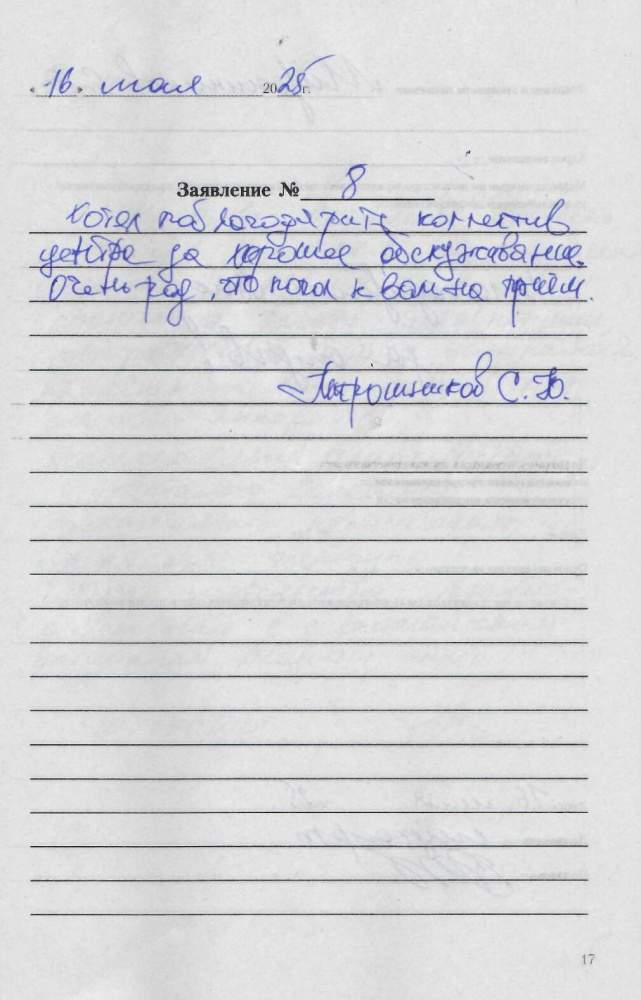 "16" мая 2025 г.
Заявление № 8
Хотел поблагодарить коллектив
центра за хорошее обслуживание.
Очень рад, что попал к вам на приём.
Патрошников С. Ю.
17